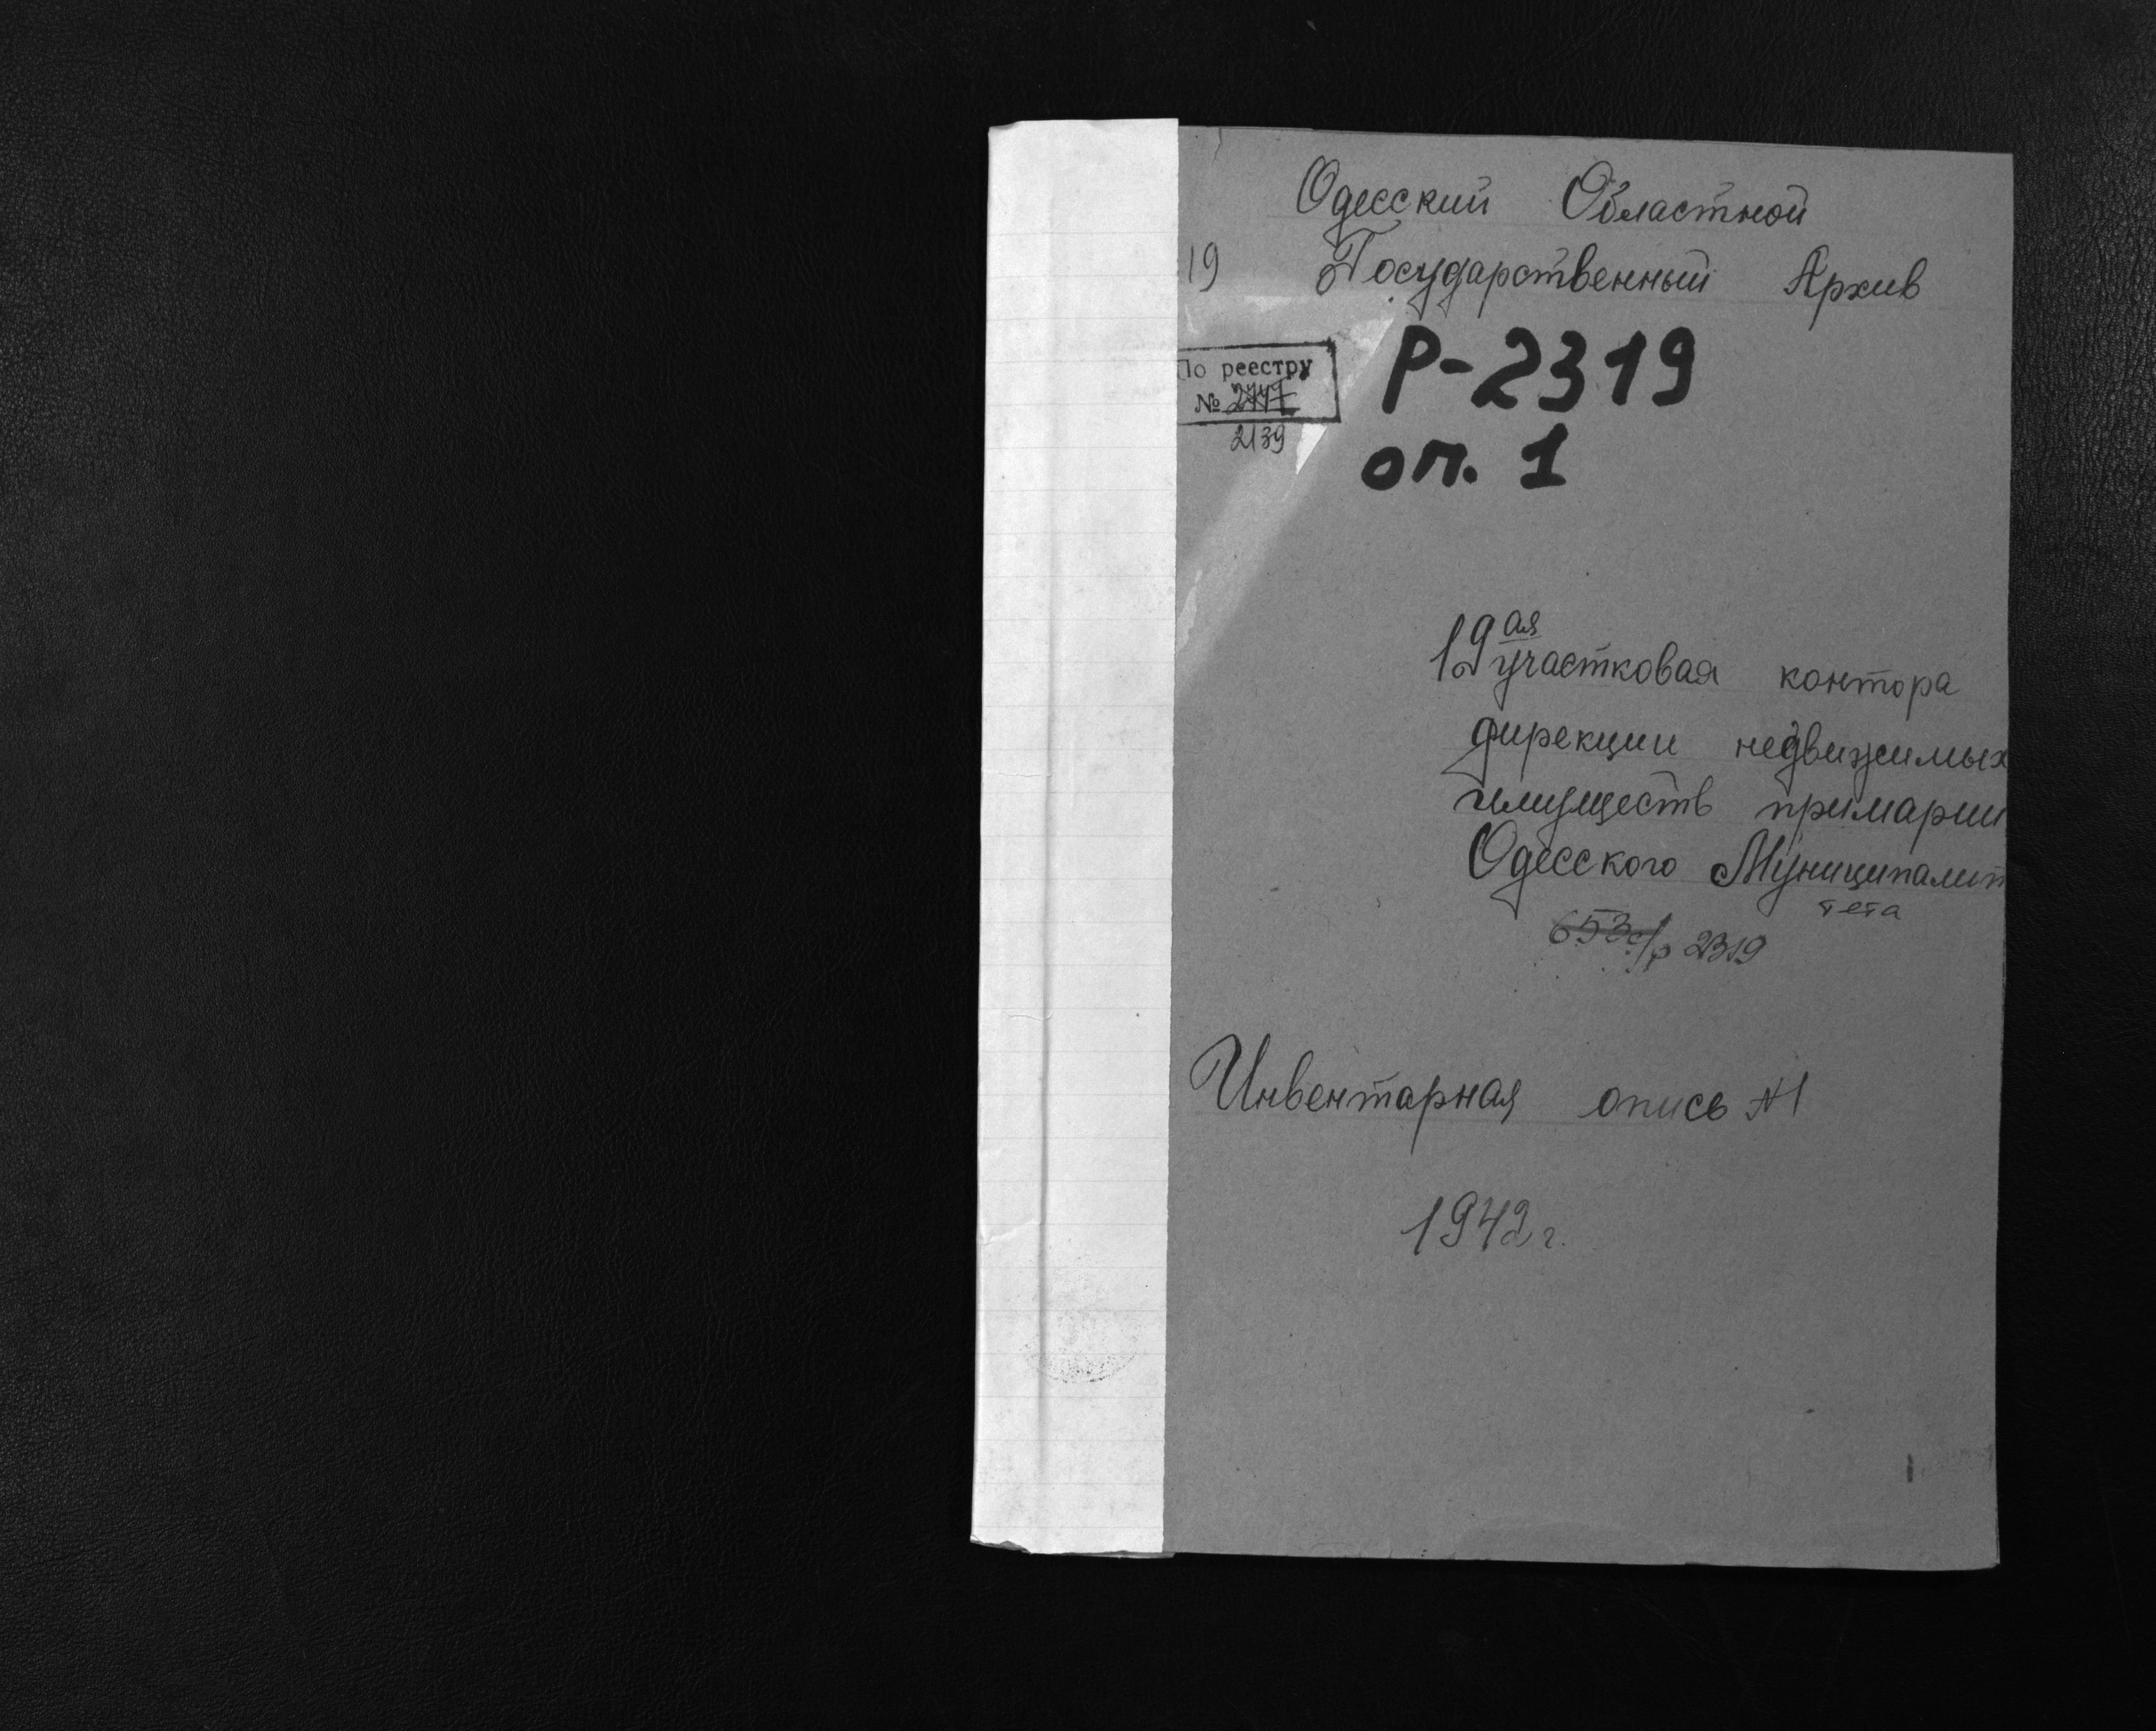 Одесский Областной
19 Государственный Архив
По реестру
№ 2747
2139
Р-2319
оп. 1
19ая участковая контора
дирекции недвижимых
имуществ примарии
Одесского Муниципалит
тета
653с/р 2319
Инвентарная опись №1
1942 г.